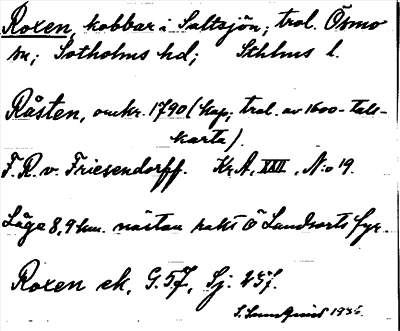 Roxen, kobbar i Saltsjön; trol. Ösmo
sn; Sotholms hd; Sthlms l.
Råsten, omkr. 1790 (kop; trol. av 1600-tals-
karta).
F. R. v. Friesendorff. Kr. A, XXII, N:o 19.
Läge 8,9 km. nästan rakt Ö Landsorts fyr.
Roxen ek, G. 57, Sj. 257.
1936.